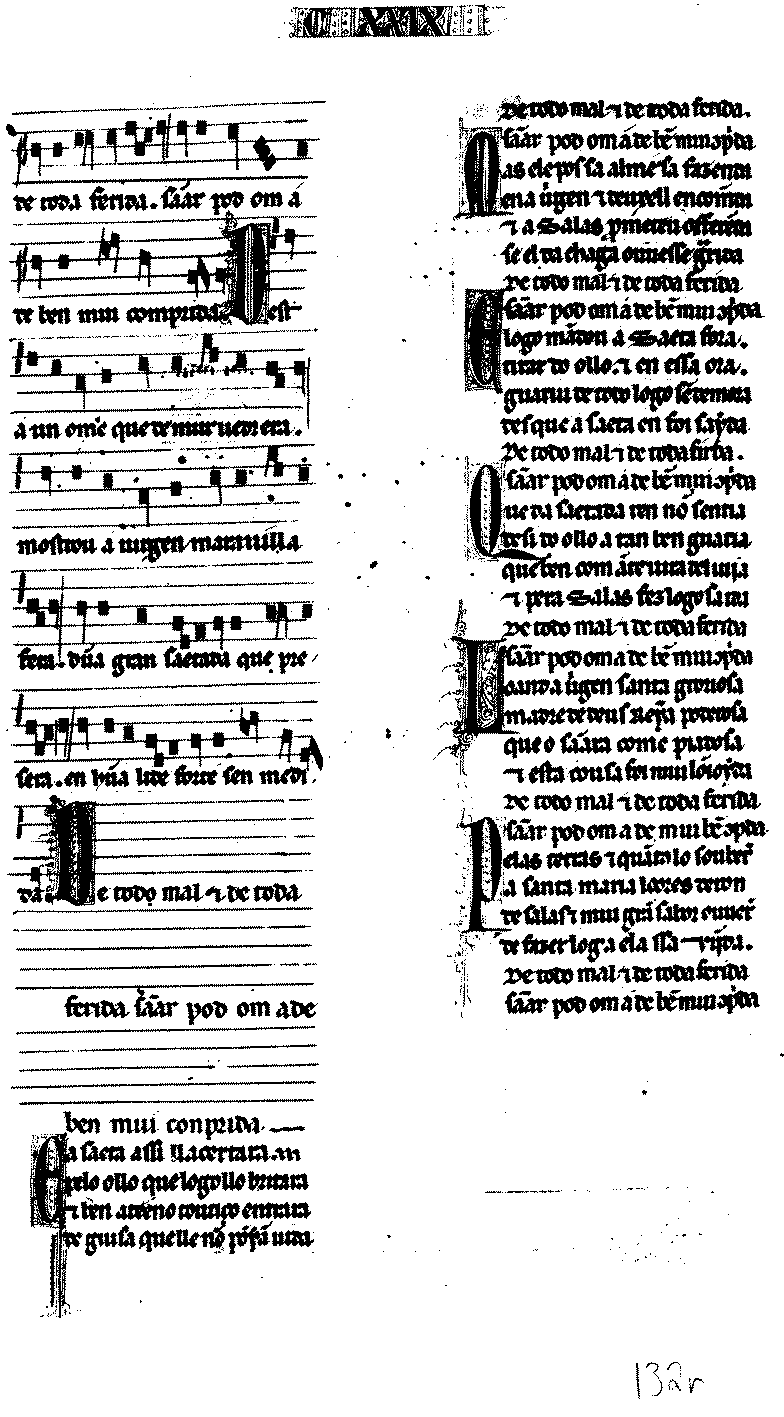 C XXIX
de toda ferida. sãar pod om á
de ben mui comprida. D est
a un om'e que demuruedr era.
mostrou a uirgen marauilla
fera. dũa gran saetada que pre
sera. en hũa lide forte sen medi
da. De todo mal ⁊ de toda
ferida sãar pod om a de
ben mui conprida.
E a saeta assi ll acertara.
pelo ollo que logo llo britara
⁊ ben atẽeno entrara
de guisa que lle nõ uida
De todo mal ⁊ de toda ferida.
sãar pod om á de bẽ mui cõp̃da
Mas ele pos sa alm e sa fazenda
ena uirgen ⁊ teue ll en comẽda
⁊ a Salas p̃meteu offerẽda
se el da chaga ouuesse g̃rida
De todo mal ⁊ de toda ferida
sãar pod om á de bẽ mui cõp̃da
E logo mãdou a saeta fora.
tirar do ollo. ⁊ en essa ora.
guariu de todo logo sẽ demora
des que a saeta en foi saỹda
De todo mal ⁊ de toda firda.
sãar pod om á de bẽ mui cõp̃da
Que da saetada ren nõ sentia
desi do ollo a tan ben guaria
que ben com ãte
⁊ pera Salas fez logo sa ida
De todo mal ⁊ de toda ferida
sãar pod om a de bẽ mui cõp̃da
Loando a uirgen santa groriosa
madre de deus reỹa poderosa
que o sãara come piadosa
⁊ esta cousa foi mui
De todo mal ⁊ de toda ferida
sãar pod om a de mui bẽ cõp̃da
Pelas terras ⁊ quãtos lo souberõ
a santa maria loores derõn
de salas ⁊ mui grã sabor ouuerõ
de fazer log a ela ssa
De todo mal ⁊ de toda ferida
sãar pod om á de bẽ mui cõp̃da
132r